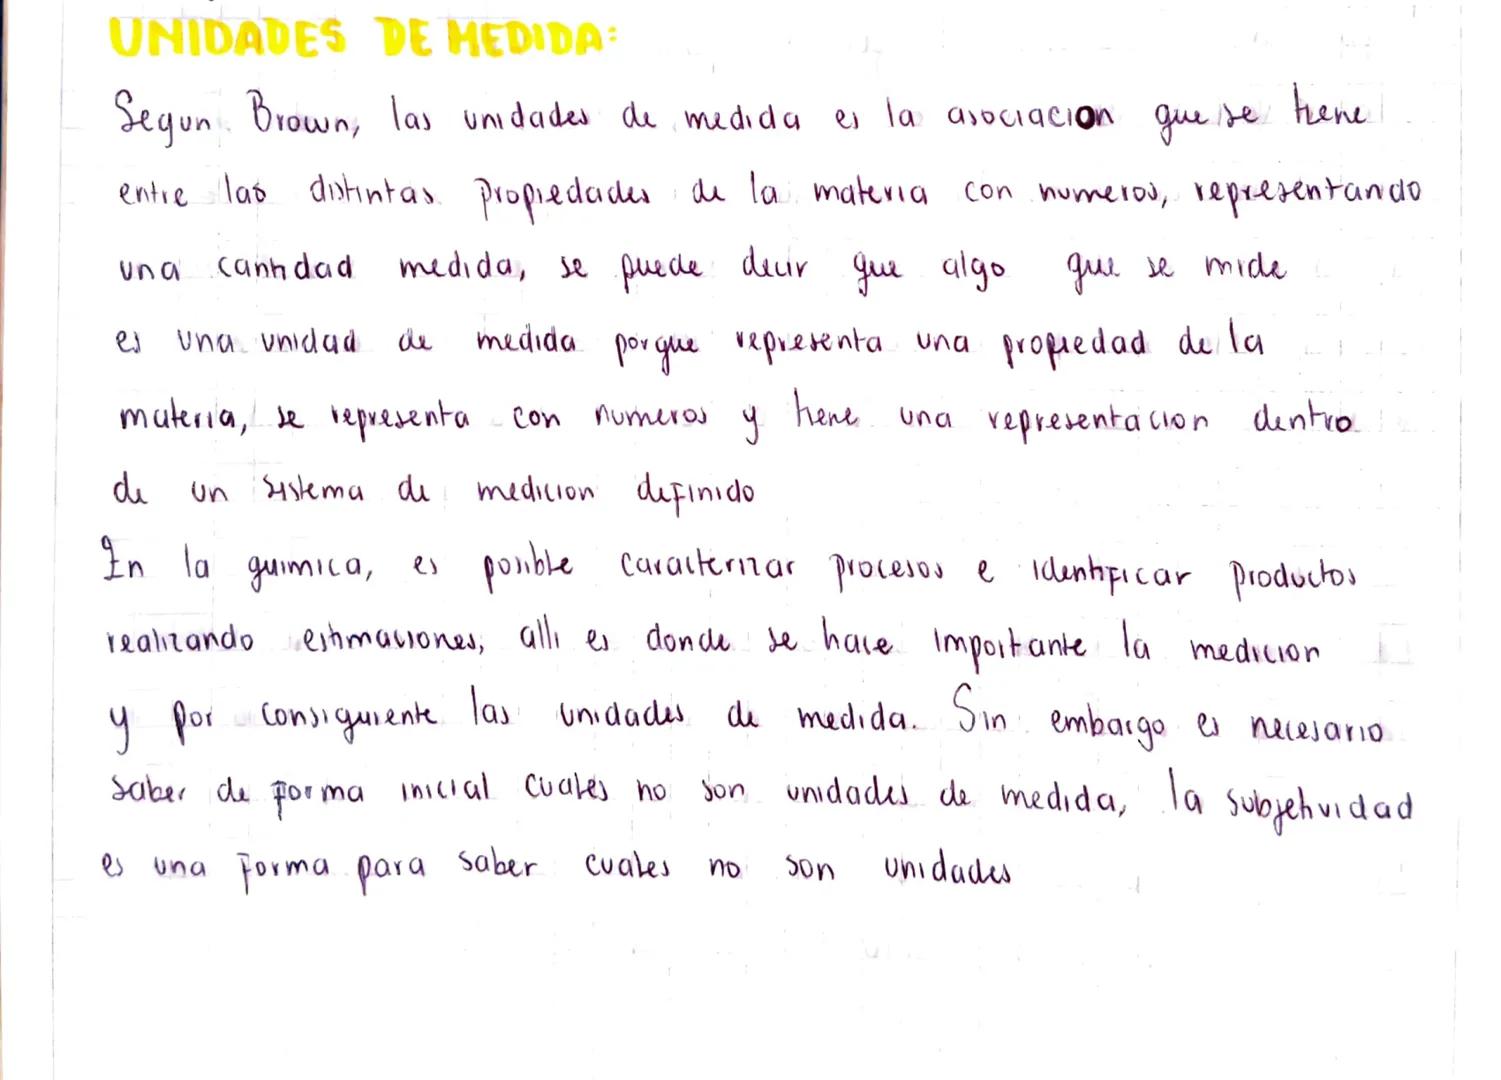 UNIDADES DE MEDIDA:
Segun Brown, las unidades de medida es la asociacion que se tiene
entre las distintas propiedades de la materia con numeros, representando
una cantidad medida, se puede decir que algo que se mide
es una unidad de medida porque representa una propiedad de la
materia, se representa con numeros y tiene una representacion dentro
de un sistema de medicion definido
En la quimica, es posible caracterizar procesos e identificar productos
realizando estimaciones, alli es donde se hace importante la medicion
y por consiguiente las unidades de medida. Sin embargo es necesario
saber de forma inicial cuales no son unidades de medida, la subjetividad
es una forma para saber cuales no son unidades